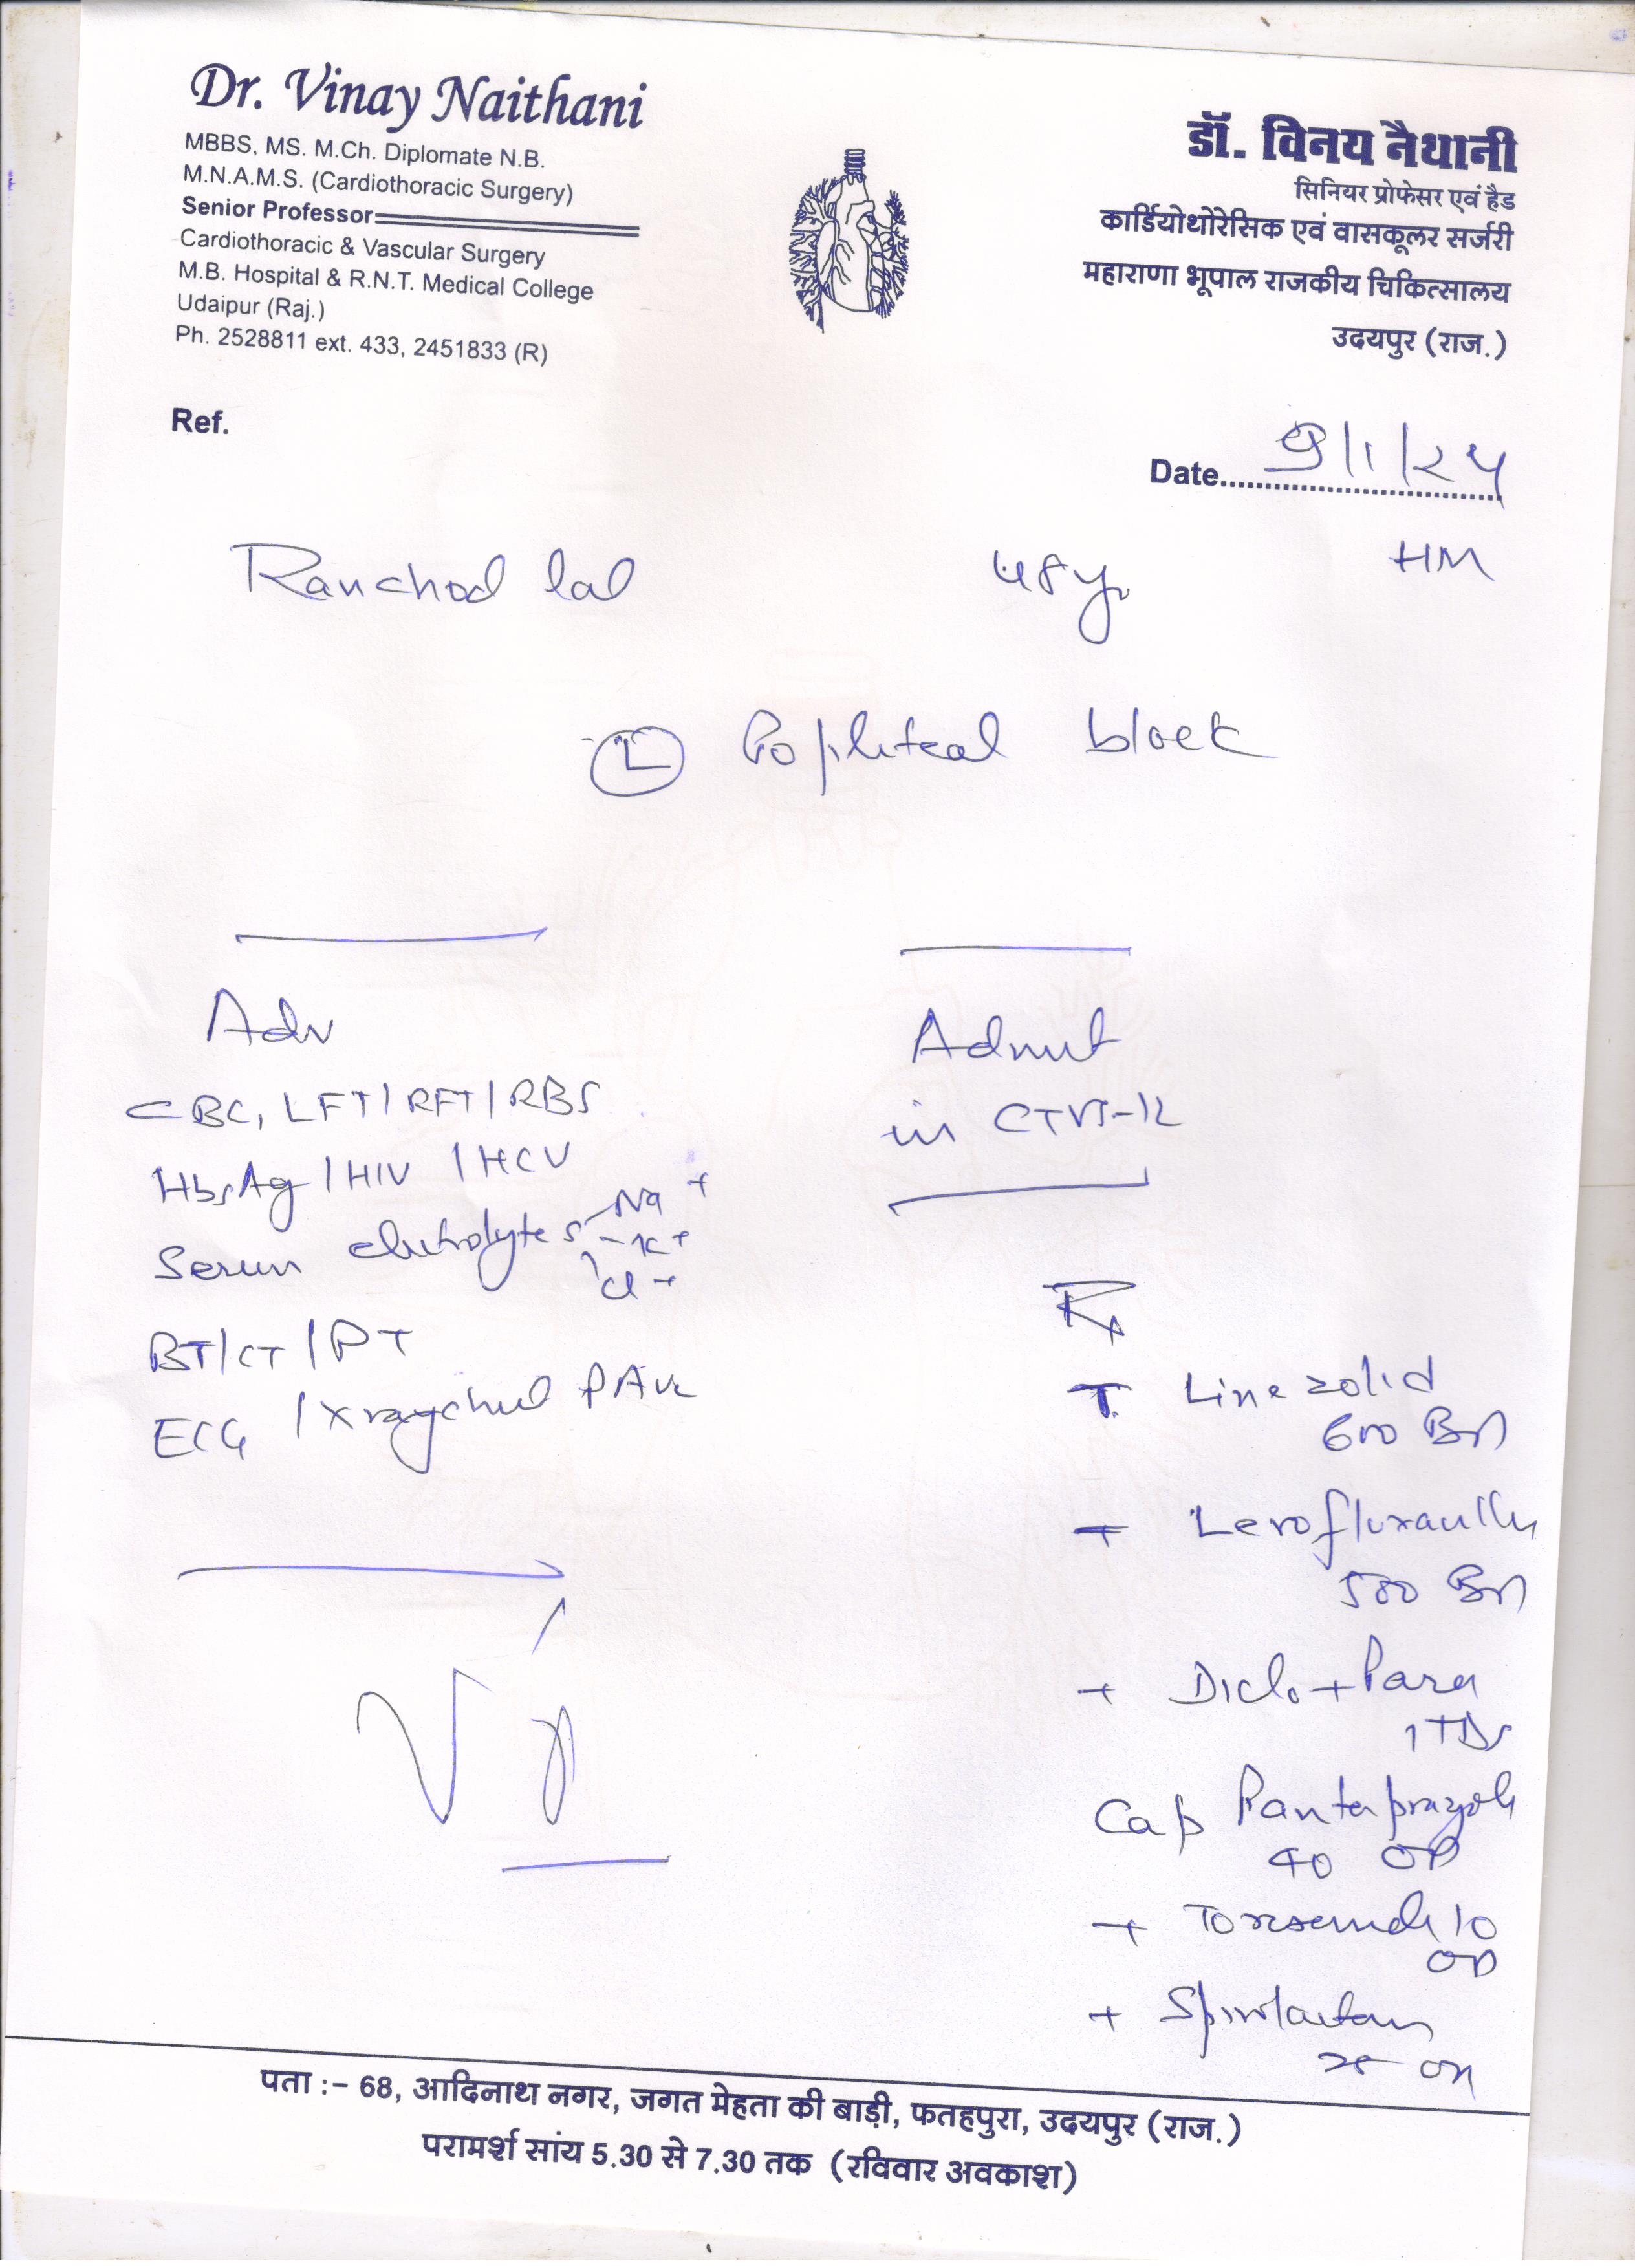 Dr. Vinay Naithani
MBBS, MS. M.Ch. Diplomate N.B.
M.N.A.M.S. (Cardiothoracic Surgery)
Senior Professor
Cardiothoracic & Vascular Surgery
M.B. Hospital & R.N.T. Medical College
Udaipur (Raj.)
Ph. 2528811 ext. 433, 2451833 (R)
डॉ. विनय नैथानी
सिनियर प्रोफेसर एवं हैड
कार्डियोथोरेसिक एवं वासकूलर सर्जरी
महाराणा भूपाल राजकीय चिकित्सालय
उदयपुर (राज.)
Ref.
Date
Ranchod lal HM
L Popliteal block
Adv
CBC, LFT/RFT/RBS
HbsAg / HIV / HCV
Serum electrolytes Na+
K+
Cl
BT/CT/PT
ECG / Xray chest PA
Admit
in CTVS
Rx
T. Linezolid
600 BD
T Levofloxacillin
500 BD
T Diclo + Para
1 TDS
Cap Pantaprazole
40 OD
T Torsemide 10
OD
T Spirolacton
OD
पता :- 68, आदिनाथ नगर, जगत मेहता की बाड़ी, फतहपुरा, उदयपुर (राज.)
परामर्श सांय 5.30 से 7.30 तक (रविवार अवकाश)